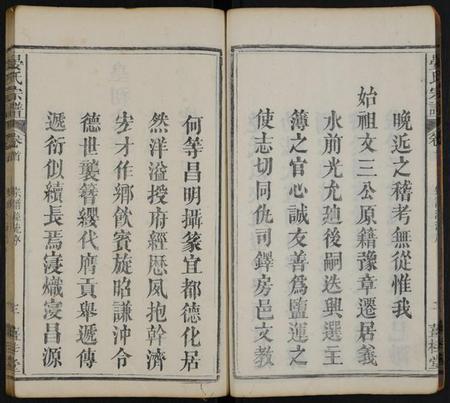 晚近之稽考無從惟我
始祖文三公原籍豫章遷居義
水前光允廸後嗣迭興選主
簿之官心誠友善爲鹽運之
使志切同仇司鐸房邑文教
何等昌明攝篆宜都德化居
然洋溢授府經歷夙抱幹濟
宏才作鄉飲賓旋昭謙沖令
德世襲簪纓代膺貢舉遞傳
遞衍似續長焉寖熾寖昌源
晏氏宗譜
卷首